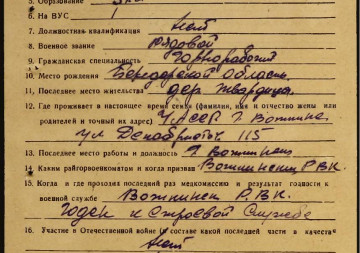 5. Образование
6. На ВУС
7. Должностная квалификация Нет
8. Военное звание рядовой
9. Гражданская специальность Горнорабочий
10. Место рождения области
11. Последнее место жительства дер.
12. Где проживает в настоящее время семья (фамилия, имя и отчество жены или
родителей и точный их адрес) УАССР г. Воткинск
ул Декабристов 115
13. Последнее место работы и должность г Воткинск
14. Каким райгорвоенкоматом и когда призван Воткинским РВК
15. Когда и где проходил последний раз медкомиссию и результат годности к
военной службе Воткинск РВК.
Годен к строевой службе
16. Участие в Отечественной войне (в составе какой последней части в качестве
Нет